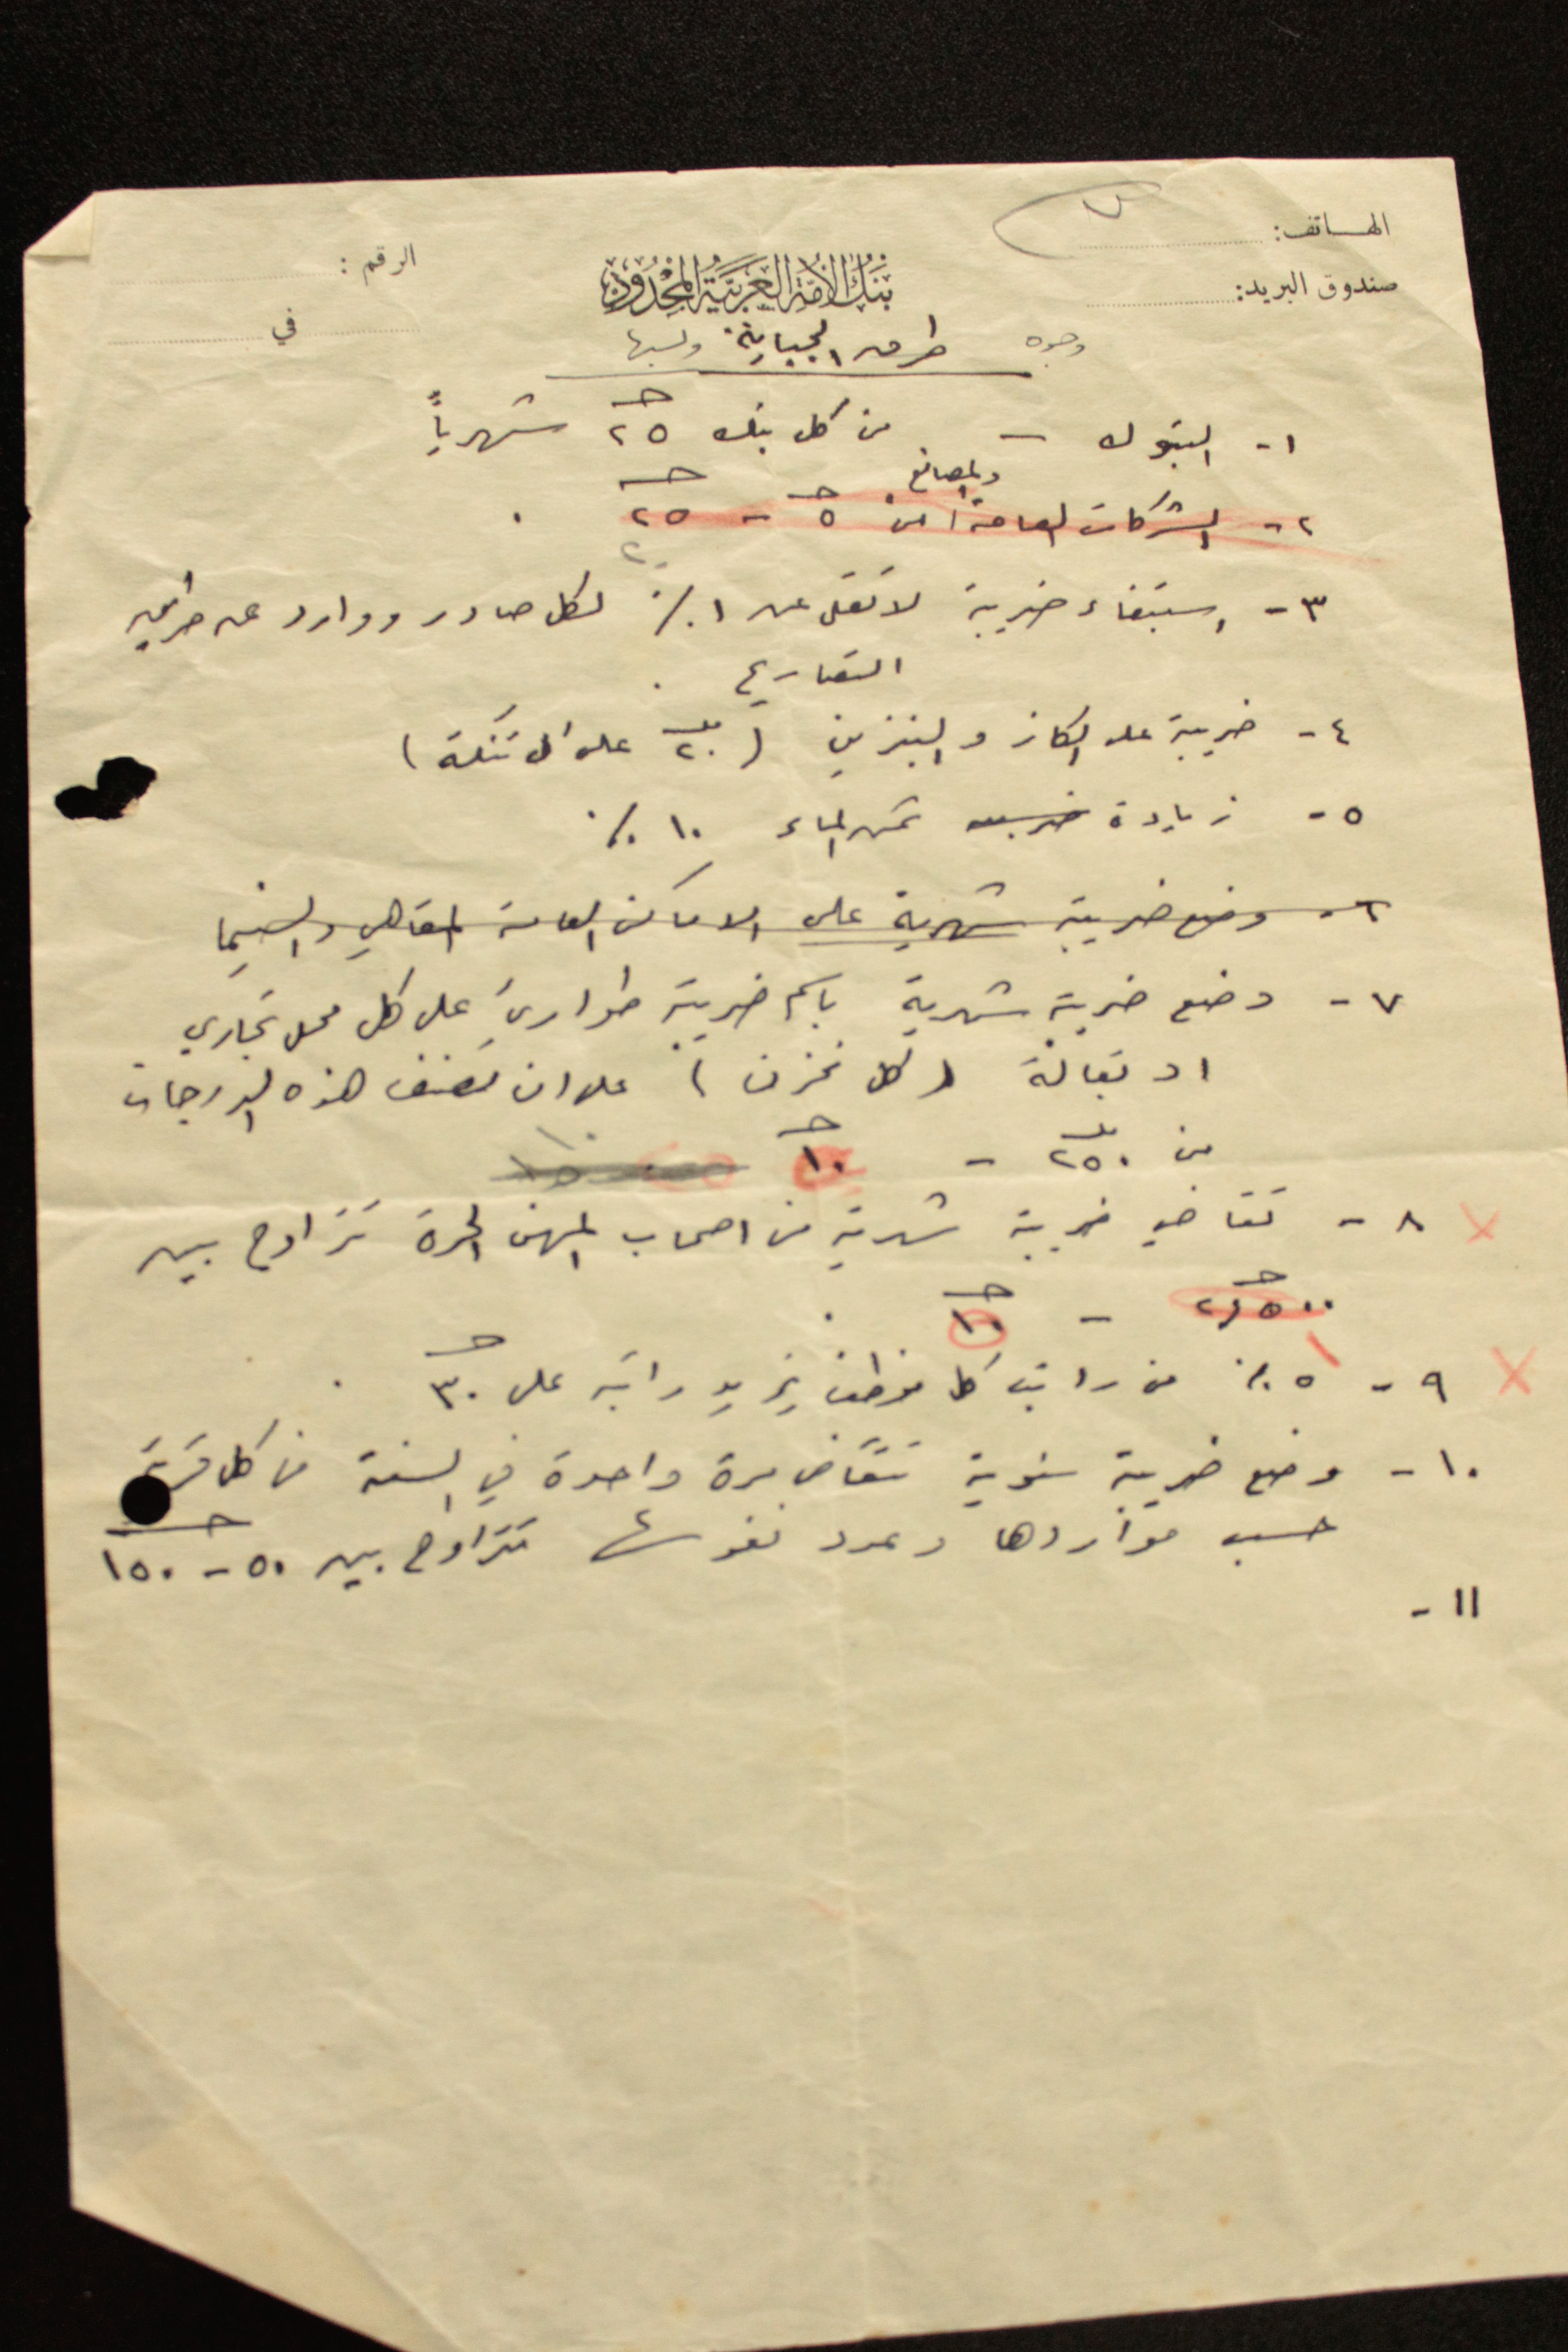 الهاتف:
صندوق البريد:
الرقم:
في
بنك الأمة العربية المحدود
وجوه طرق الجباية ونسبها
١- البنوك - من كل بنك ٢٥ جـ شهرياً
والمصانع
٢- الشركات العامة من ٥ جـ - ٢٥ جـ
٢٠
٣- استيفاء ضريبة لا تقل عن ١٪ لكل صادر ووارد عن طريق
التصاريح.
٤- ضريبة على الكاز والبنزين (٢٠ مل على ال تنكة)
٥- زيادة ضريبة ثمن الماء ١٠٪
٦- وضع ضريبة شهرية على الاماكن العامة المقاهي والسينما
٧- وضع ضريبة شهرية باسم ضريبة طوارئ على كل محل تجاري
او بقالة (كل مخزن) على ان تصنف هذه الدرجات
من ٢٥٠ مل - ١٠ جـ
٨- تقاضي ضريبة شهرية من اصحاب المهن الحرة تتراوح بين
٢٫٥٠٠ جـ - ١٠ جـ.
٩- ٥٪ من راتب كل موظف يزيد راتبه على ٣٠ جـ.
١٠- وضع ضريبة سنوية تتقاضى مرة واحدة في السنة من كل قرية
حسب مواردها وعدد نفوسها تتراوح بين ٥٠ - ١٥٠ جـ
١١-